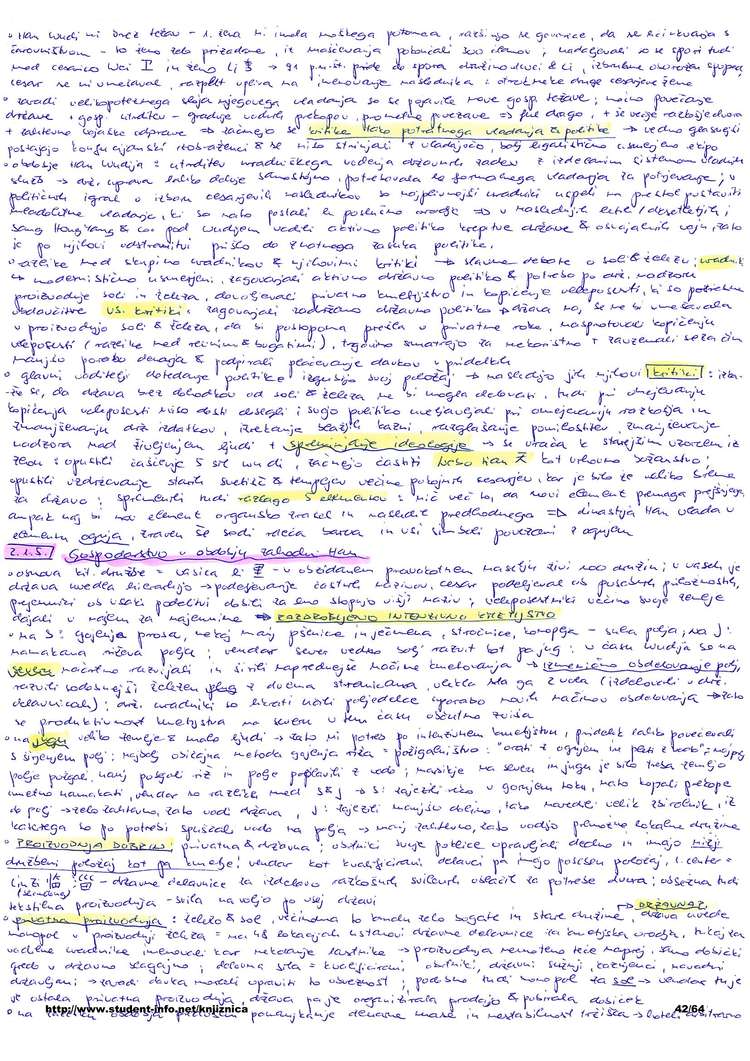 • Han Wudi ni brez težav - 1. žena ni imela moškega potomca, razširijo se govorice, da se je ukvarjala s
čarovništvom - to ženo zelo prizadane, iz maščevanja pobonjali
med cesarico Wei in ženo Li → 91 pr.n.št. pride do spora družino
cesar se ni vmešaval, vpliva na imenovanje naslednika
• zaradi velikopoteznega sloga njegovega vladanja so se pojavile nove gosp. težave; močno povečanje
države, gosp. utrditev - gradnja vodnih prekopov, prometne povezave → ful drago, + še večje razkošje dvora
+ zahtevne vojaške odprave → začnejo se kritike tako potratnega vladanja & politike → vedno glasnejši
postajajo konfucijanski izobraženci & se niso strinjali z vladajočo, bolj legalistično usmerjeno ekipo
• obdobje Han Wudija = utrditev uradniškega vodenja državnih zadev z izdelanim sistemom uradniških
služb → drž. uprava lahko deluje samostojno, potrebovala je formalnega vladarja za potrjevanje; v
političnih igrah o izboru cesarjevih naslednikov so najvplivnejši uradniki uspeli na prestol postaviti
mladoletne vladarje, ki so nato postali le poslušno orodje → v naslednjih
Sang Hongyang & co. pod Wudijem vodili aktivno politiko krepitve države & osvajalnih vojn, zato
je po njihovi odstranitvi prišlo do znatnega zasuka politike.
• razlike med skupino uradnikov & njihovimi kritiki → slavne debate o soli & železu; uradniki
↳ modernistično usmerjeni, zagovarjali aktivno državno politiko & potrebo po drž. nadzoru
proizvodnje soli in železa, dovoljevali privatno kmetijstvo in kopičenje veleposesti, ki so
vs. kritiki: zagovarjali zadržano državno politiko → država naj se ne bi vmešavala
v proizvodnjo soli & železa, da bi postopoma prešla v privatne roke, nasprotovali kopičenju
veleposesti (razlike med revnimi & bogatimi), trgovino smatrajo za nekoristno + zavzemali se za čim
manjšo porabo denarja & podpirali plačevanje davkov v pridelkih
• glavni voditelji dotedanje politike izgubijo svoj položaj → nasledijo jih njihovi kritiki: izka-
že se, da država brez dohodkov od soli & železa ne bi mogla delovati, tudi pri omejevanju
kopičenja veleposesti niso dosti dosegli; svojo politiko uveljavljali pri omejevanju razkošja in
zmanjševanju drž. izdatkov, izrekanje blažjih kazni, razglašanje pomilostitev, zmanjševanje
nadzora nad življenjem ljudi + spreminjanje ideologije → se vrača k starejšim vzorcem iz
Zhou: opustili čaščenje 5 sil wudi, začnejo častiti Nebo tian 天 kot vrhovno božanstvo;
opustili vzdrževanje starih svetišč & templjev večine pokojnih cesarjev, kar je bilo že veliko breme
za državo; spremenili tudi razlago 5 elementov: nič več to, da novi element premaga prejšnjega,
ampak naj bi nov element organsko zrasel in nasledil predhodnega → dinastija Han vlada v
elementu ognja, zraven še sodi rdeča barva in vsi simboli povezani z ognjem
2.1.5. Gospodarstvo v obdobju zahodni Han
• osnova kit. družbe = vasica li 里 - v obzidanem pravokotnem naselju živi 100 družin; v vaseh je
država uvedla hierarhijo → podeljevanje častnih nazivov, cesar podeljeval ob posebnih priložnostih,
prejemniki ob vsaki podelitvi dobili za eno stopnjo višji naziv; veleposestniki večino svoje zemlje
dajali v najem za najemnine → RAZDROBLJENO INTENZIVNO KMETIJSTVO
• na S: gojenje prosa, nekaj manj pšenice in ječmena, stročnice, konoplja - suha polja; na J:
namakana riževa polja; vendar sever vedno bolj razvit kot pa jug; v času Wudija so na
severu načrtno razvijali in širili naprednejše načine kmetovanja → izmenično obdelovanje polj,
razvili sodobnejši železen plug z dvema stranicama, vlekla sta ga 2 vola (izdelovali v drž.
delavnicah); drž. uradniki so hkrati učili poljedelce uporabo novih načinov obdelovanja → zato
se produktivnost kmetijstva na severu v tem času občutno zviša
• na jugu veliko zemlje & malo ljudi → zato ni potreb po intenzivnem kmetijstvu, pridelek lahko povečevali
s širjenjem polj; najbolj običajna metoda gojenja riža = požigalništvo: "orati z ognjem in pleti z vodo"; najprej
polje požgali, nanj posejali riž in polje poplavili z vodo; nasploh na severu in jugu je bilo treba zemljo
umetno namakati, vendar so razlike med S & J → S: zajezili reko v gornjem toku, nato kopali prekope
do polj → zelo zahtevno, zato vodi država, J: zajezili manjšo dolino, tako naredili velik zbiralnik, iz
katerega so po potrebi spuščali vodo na polja → manj zahtevno, zato vodijo premožne lokalne družine
• PROIZVODNJA DOBRIN: privatna & državna; obrtniki svoje poklice upravljali dedno in imajo nižji
družbeni položaj kot pa kmetje; vendar kot kvalificirani delavci pa imajo poseben položaj, 1. center =
Linzi - državne delavnice za izdelavo razkošnih svilenih oblačil za potrebe dvora; obsežna tudi
tekstilna proizvodnja - svila na voljo po vsej državi
→ DRŽAVNA:
• privatna proizvodnja: železo & sol, večinoma to imele zelo bogate in stare družine, država uvede
monopol v proizvodnji železa = na 48 lokacijah ustanovi državne delavnice za kmetijska orodja, tukaj za
vodilne uradnike imenovali kar nekdanje lastnike → proizvodnja nemoteno teče naprej, samo dobički
gredo v državno blagajno; delovna sila = kvalificirani obrtniki, državni sužnji, kaznjenci, navadni
državljani → zaradi davka morali opraviti to obveznost; podobno tudi monopol za sol → vendar tu je
še ostala privatna proizvodnja, država pa je organizirala prodajo & pobirala dobiček
http://www.student-info.net/knjiznica
42/64